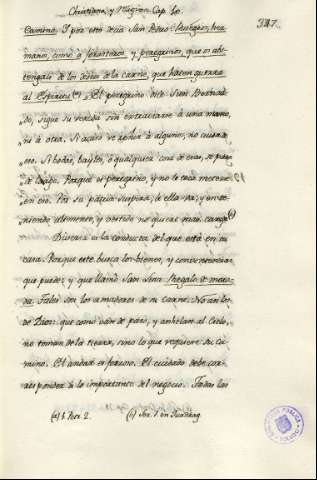 Christiana, y Mystica. Cap. 50.
347.
Camino. Y por esto decia San Pedro: Ruegoos, her-
manos, como a forasteros, y peregrinos, que os abs-
tengais de los deseos de la carne, que hacen guerra
al Espiritu (a). El peregrino dice San Bernar-
do, sigue su vereda sin extraviarse à una mano,
ni à otra. Si acaso ve reñir à algunos, no cuida de
eso. Si bodas, bayles, ò qualquiera cosa de esas, se pasa
de largo. Porque es peregrino, y no le toca meterse
en eso. Por su patria suspira, à ella va; y te-
niendo alimento, y vestido no quiere mas carga (b)
Diversa es la conducta del que està en su
casa. Porque este busca los bienes, y conveniencias
que puede; y que llamò San Juan Regalo de
vida. Tales son los amadores de su carne. No asi los
de Dios: que como van de paso, y anhelan al Cielo,
no toman de la tierra, sino lo que requiere su ca-
mino. El andar es forzoso. El cuidado debe cor-
responder à la importancia del negocio. Todos los
(a) 1. Petr. 2. (b) Ser. 7. in Quadrag.